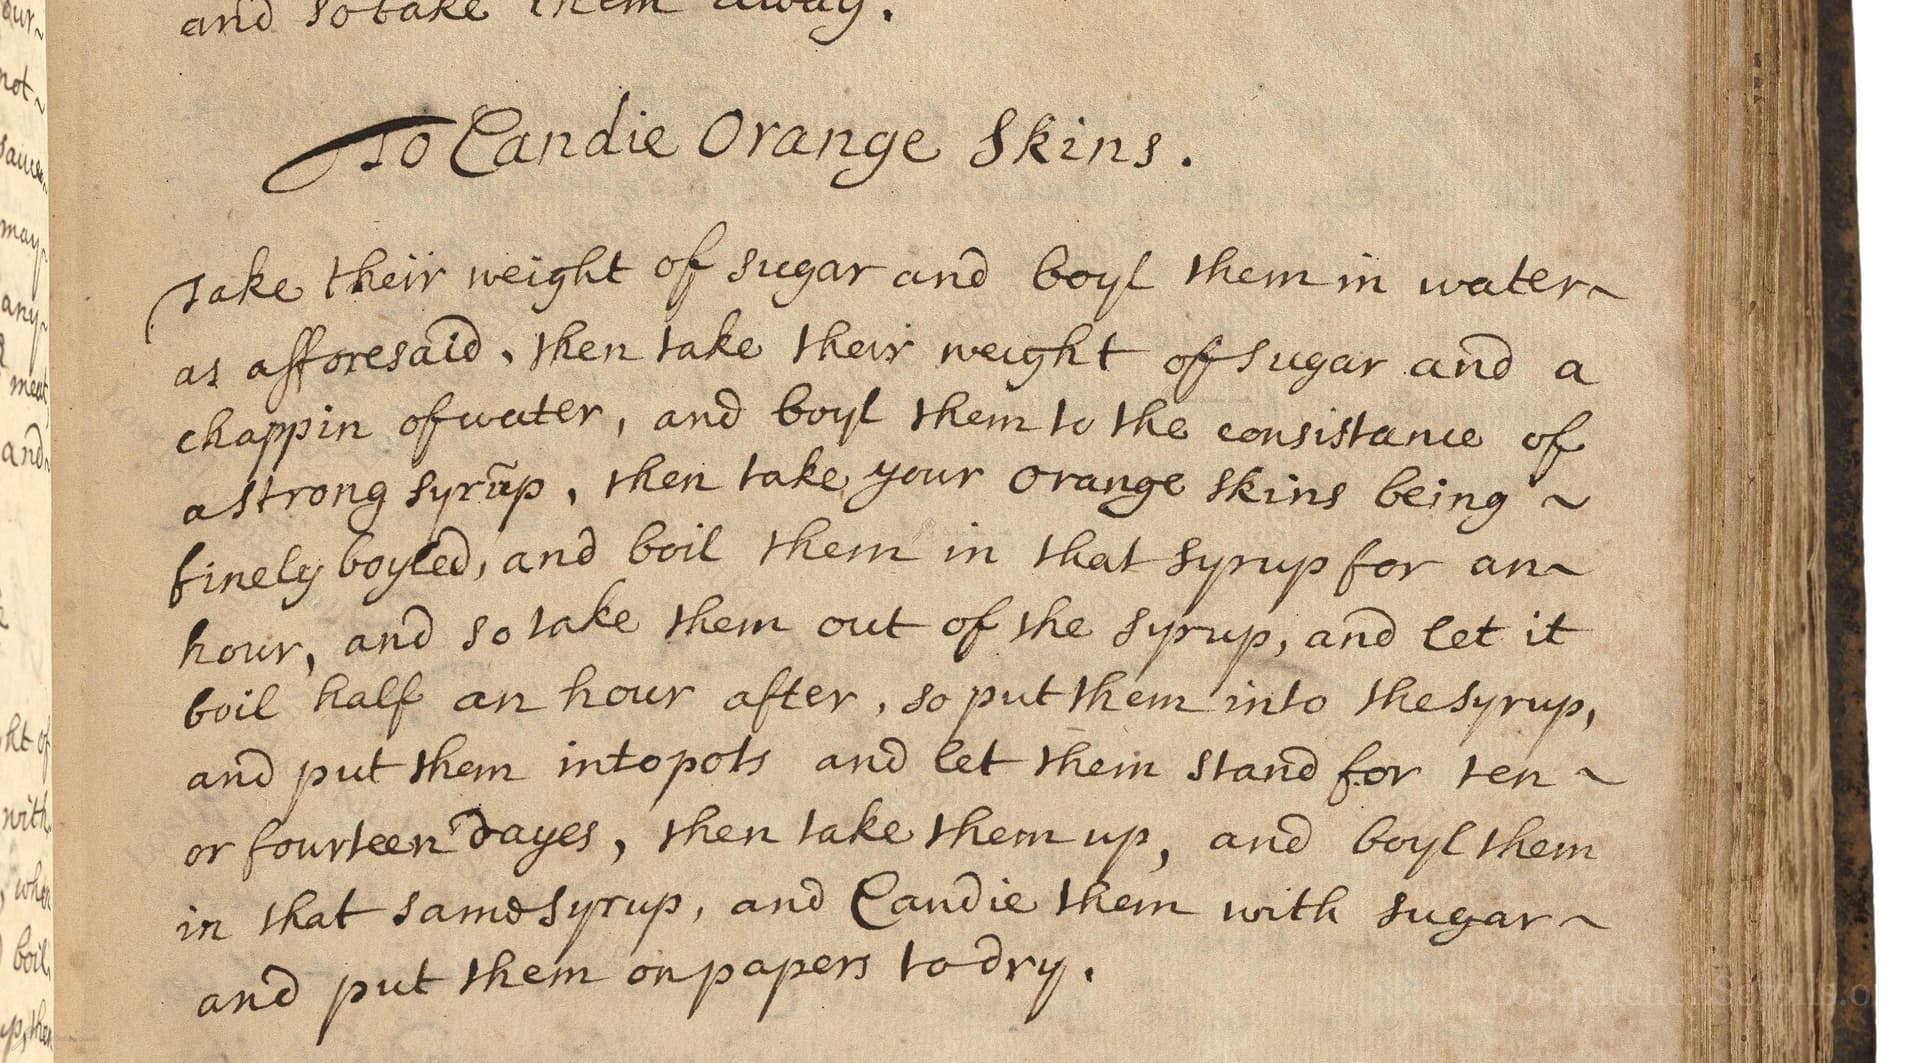 and so take them away.
To Candie Orange Skins.
Take their weight of sugar and boyl them in water~
as afforesaid, then take their weight of sugar and a
chappin of water, and boyl them to the consistance of
a strong syrup, then take your orange skins being ~
finely boyled, and boil them in that syrup for an~
hour, and so take them out of the syrup, and let it
boil half an hour after, so put them into the syrup,
and put them into pots and let them stand for ten ~
or fourteen dayes, then take them up, and boyl them
in that same syrup, and Candie them with sugar~
and put them on papers to dry.
not~
may~
any~
meat,
and~
ht of
with
boil